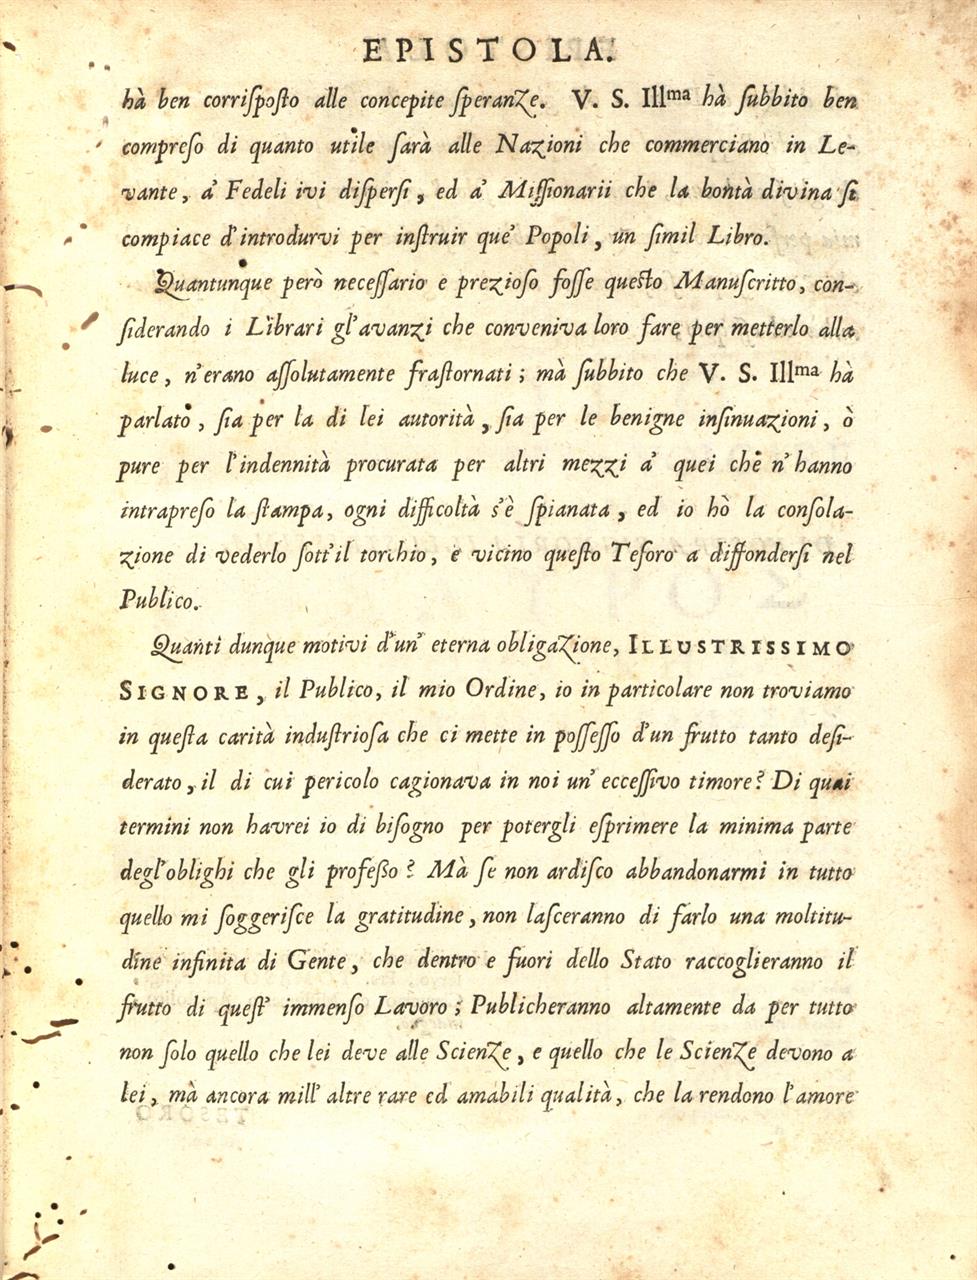 EPISTOLA.
hà ben corriſpoſto alle concepite ſperanze. V. S. Illᵐᵃ hà ſubbito ben
compreſo di quanto utile ſarà alle Nazioni che commerciano in Le-
vante, a' Fedeli ivi diſperſi, ed a' Miſſionarii che la bontà divina ſi
compiace d'introdurvi per inſtruir que' Popoli, un ſimil Libro.
Quantunque però neceſſario e prezioſo foſſe queſto Manuſcritto, con-
ſiderando i Librari gl'avanzi che conveniva loro fare per metterlo alla
luce, n'erano aſſolutamente fraſtornati; mà ſubbito che V. S. Illᵐᵃ hà
parlato, ſia per la di lei autorità, ſia per le benigne inſinuazioni, ò
pure per l'indennità procurata per altri mezzi a' quei che n'hanno
intrapreſo la ſtampa, ogni difficoltà s'è ſpianata, ed io hò la conſola-
zione di vederlo ſott'il torchio, e vicino queſto Teſoro a diffonderſi nel
Publico.
Quanti dunque motivi d'un' eterna obligazione, ILLUSTRISSIMO
SIGNORE, il Publico, il mio Ordine, io in particolare non troviamo
in queſta carità induſtrioſa che ci mette in poſſeſſo d'un frutto tanto deſi-
derato, il di cui pericolo cagionava in noi un' ecceſſivo timore? Di quai
termini non havrei io di biſogno per potergli eſprimere la minima parte
degl'oblighi che gli profeſſo? Mà ſe non ardiſco abbandonarmi in tutto
quello mi ſoggeriſce la gratitudine, non laſceranno di farlo una moltitu-
dine infinita di Gente, che dentro e fuori dello Stato raccoglieranno il
frutto di queſt' immenſo Lavoro; Publicheranno altamente da per tutto
non ſolo quello che lei deve alle Scienze, e quello che le Scienze devono a
lei, mà ancora mill' altre rare ed amabili qualità, che la rendono l'amore